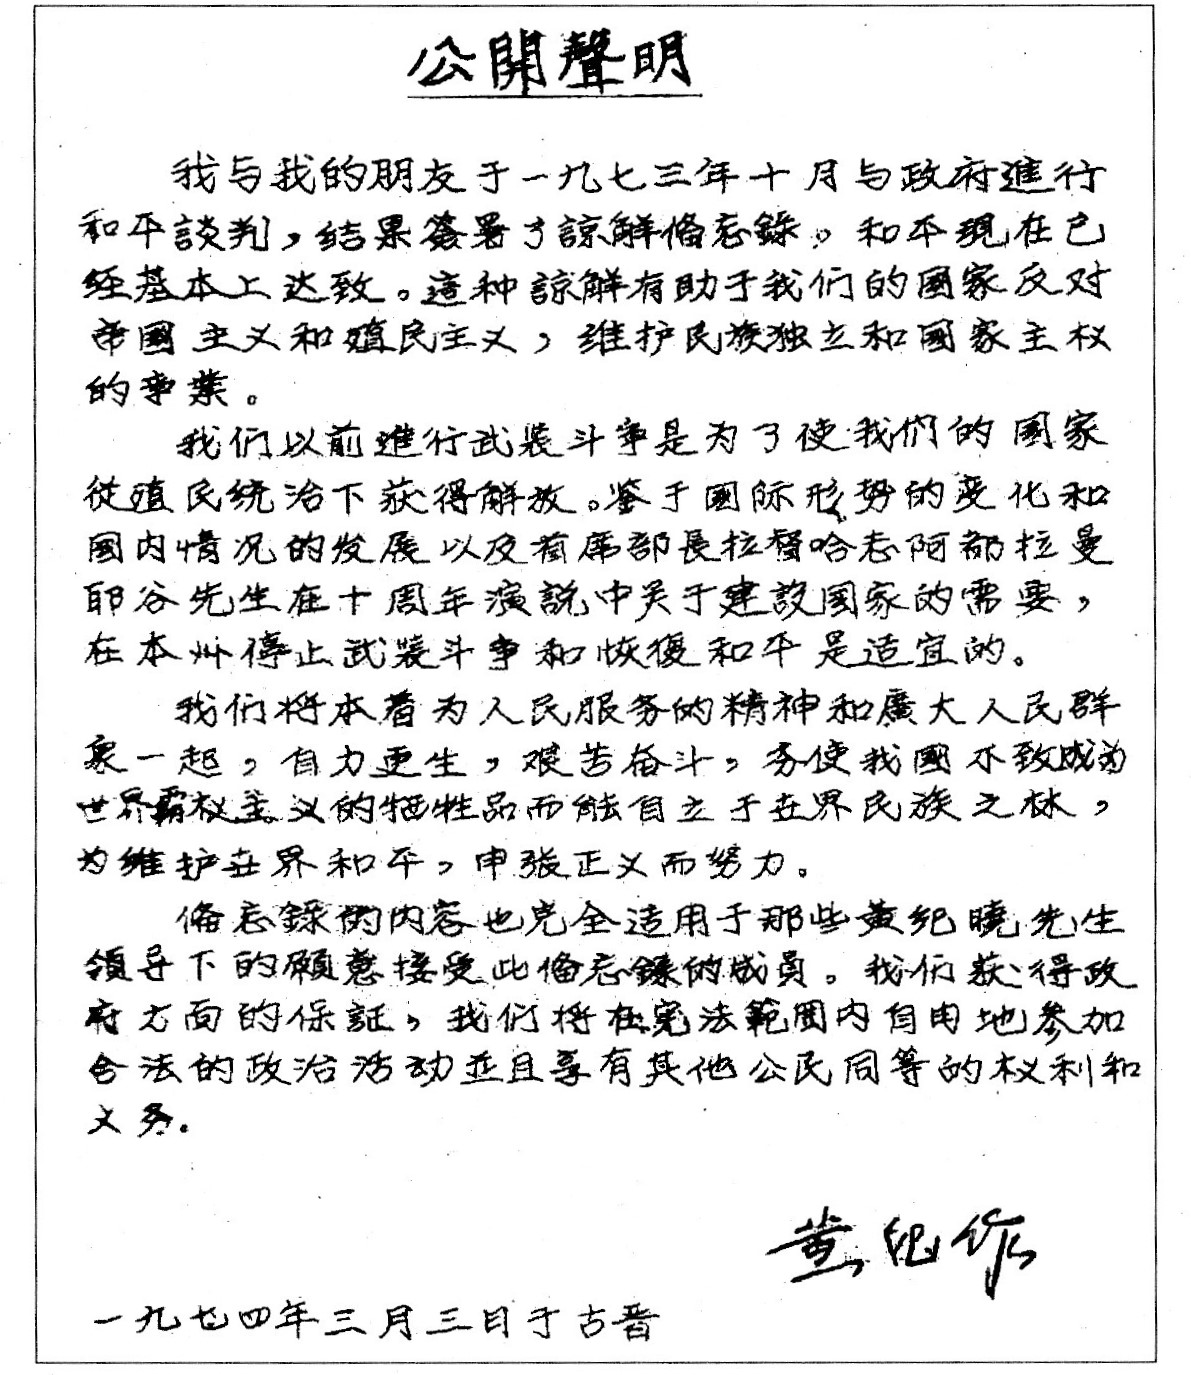 公開聲明
我与我的朋友于一九七三年十月与政府進行
和平談判，结果簽署了諒解俻忘錄，和平現在已
经基本上达致。這种諒解有助于我们的國家反对
帝國主义和殖民主义，维护民族独立和國家主权
的事業。
我们以前進行武装斗争是为了使我们的國家
從殖民统治下获得解放。鉴于國际形势的变化和
國内情况的发展以及首席部長拉督哈志阿都拉曼
耶谷先生在十周年演説中关于建設國家的需要，
在本州停止武裝斗争和恢復和平是适宜的。
我们将本着为人民服务的精神和廣大人民群
衆一起，自力更生，艰苦奋斗，务使我國不致成为
世界霸权主义的牺牲品而能自立于世界民族之林，
为维护世界和平，申张正义而努力。
俻忘錄的内容也完全适用于那些黄纪曉先生
領导下的願意接受此俻忘錄的成員。我们获得政
府方面的保証，我们将在宪法範囲内自由地参加
合法的政治活动並且享有其他公民同等的权利和
义务。
黄纪作
一九七四年三月三日于古晋